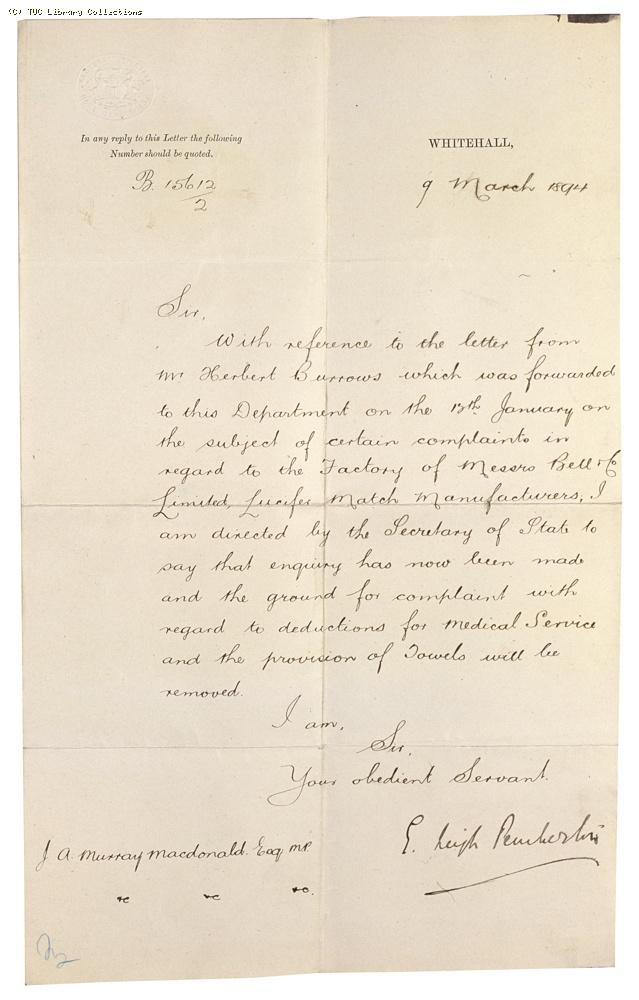 (C) TUC Library Collections
In any reply to this Letter the following
Number should be quoted.
B. 15612/2
WHITEHALL,
9 March 1894
Sir,
With reference to the letter from
Mr Herbert Burrows which was forwarded
to this Department on the 13th January on
the subject of certain complaints in
regard to the Factory of Messrs Bell & Co
Limited, Lucifer Match Manufacturers, I
am directed by the Secretary of State to
say that enquiry has now been made
and the ground for complaint with
regard to deductions for Medical Service
and the provision of Towels will be
removed.
I am,
Sir,
Your obedient Servant.
E. Leigh Pemberton
J A. Murray Macdonald. Esq MP.
&c &c &c.